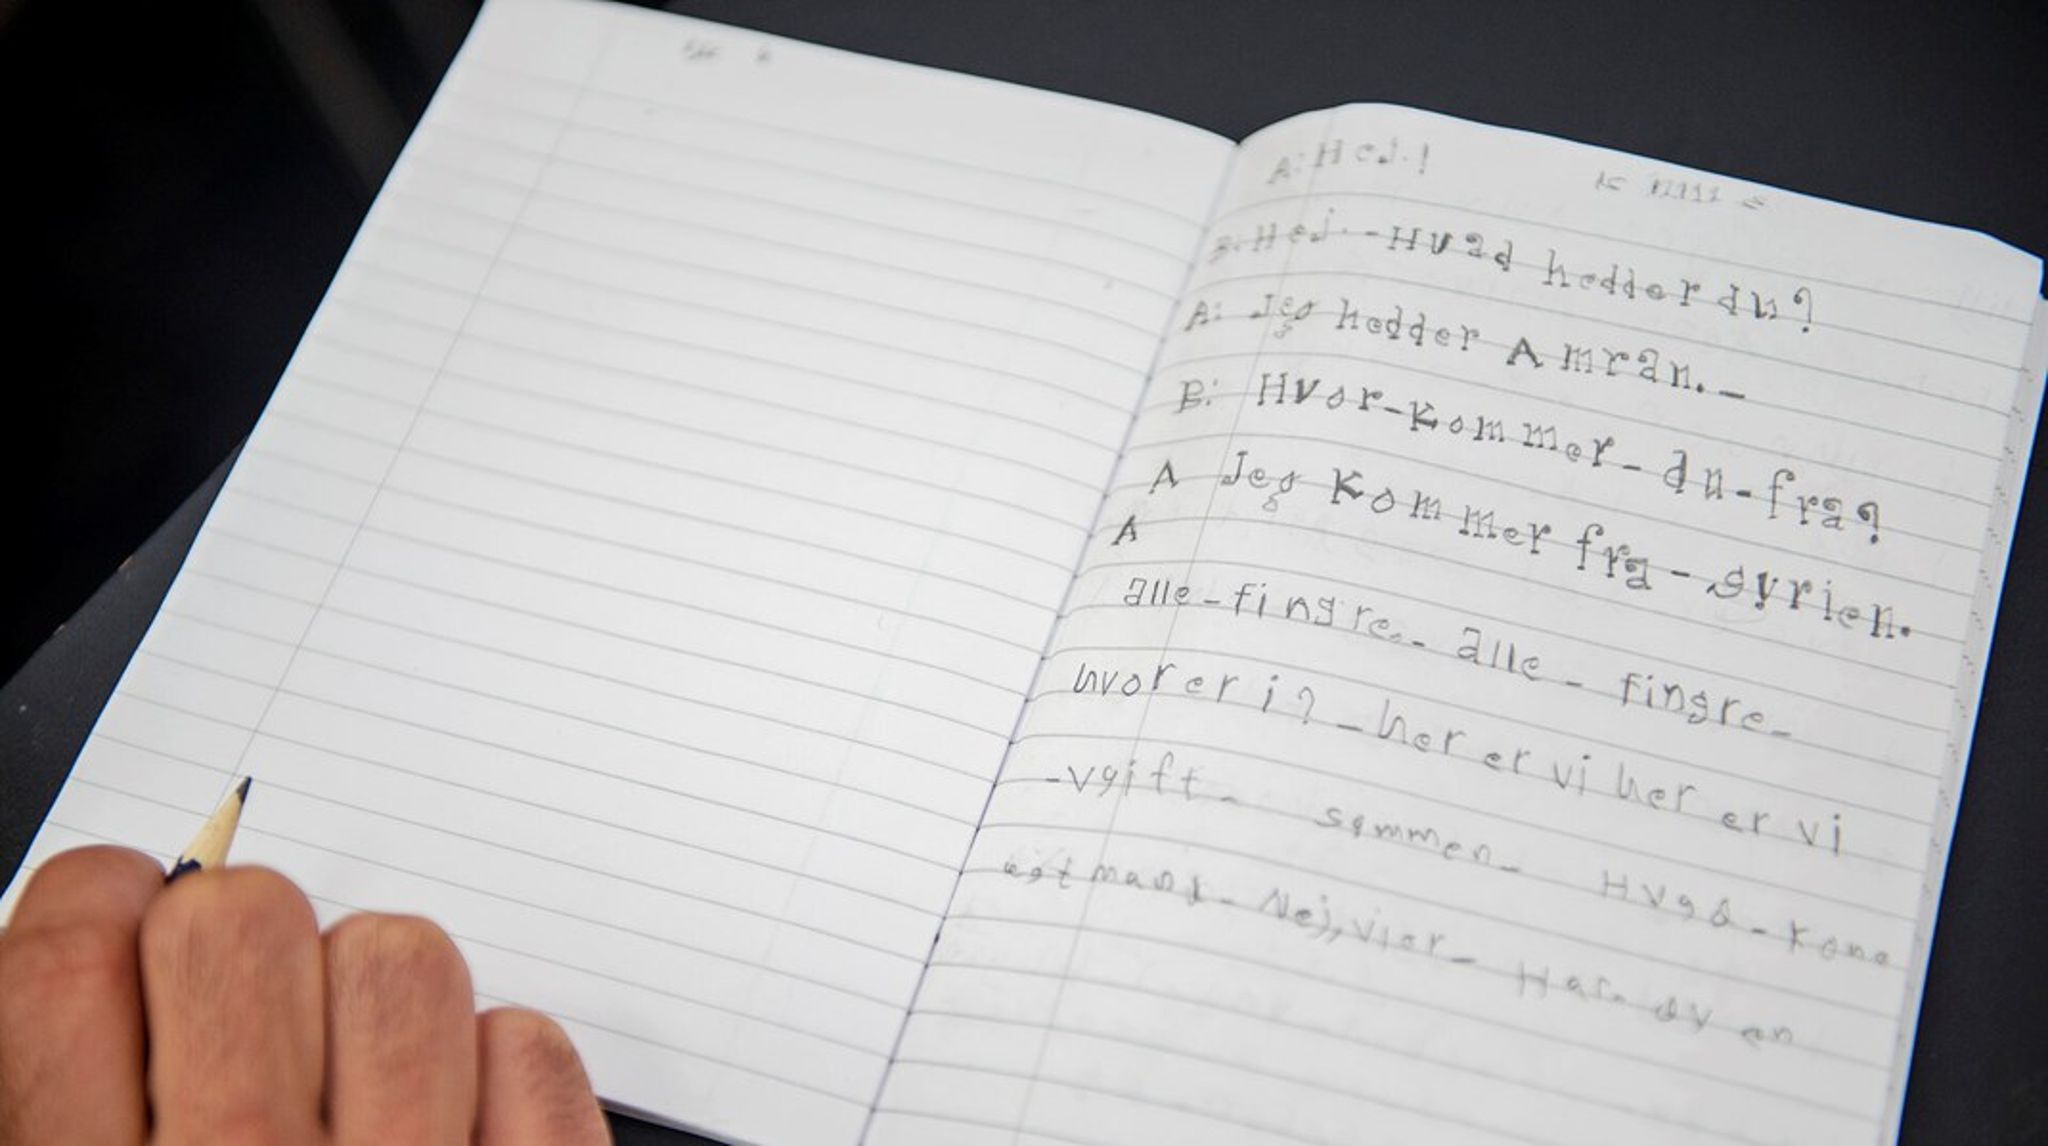 A: Hej.!
B: Hej. - Hvad hedder du?
A: Jeg hedder Amran. -
B: Hvor-kommer-du-fra?
A Jeg Kommer fra - syrien.
A
alle-fingre.- alle - fingre-
hvor er i? - her er vi her er vi
-vgift- sammen- Hvad - Kone
mans- Nej, vi er- Har. en